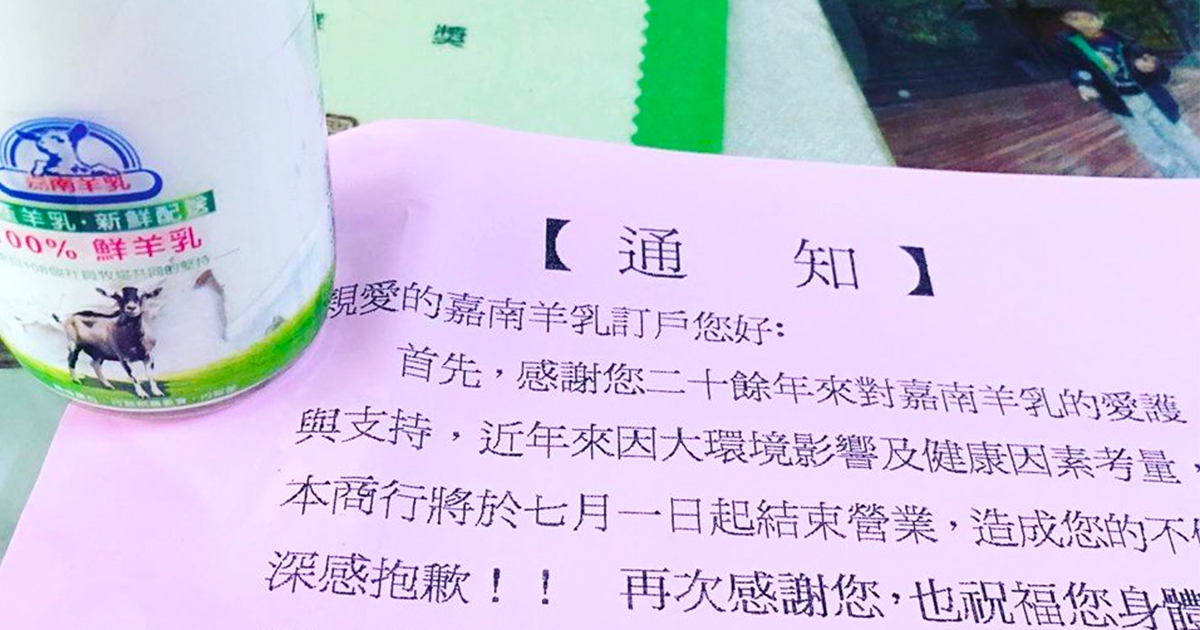 獎
嘉南羊乳
羊乳·新鮮配
00% 鮮羊乳
【通 知】
親愛的嘉南羊乳訂戶您好:
首先,感謝您二十餘年來對嘉南羊乳的愛護
與支持,近年來因大環境影響及健康因素考量,
本商行將於七月一日起結束營業,造成您的不
深感抱歉!! 再次感謝您,也祝福您身體